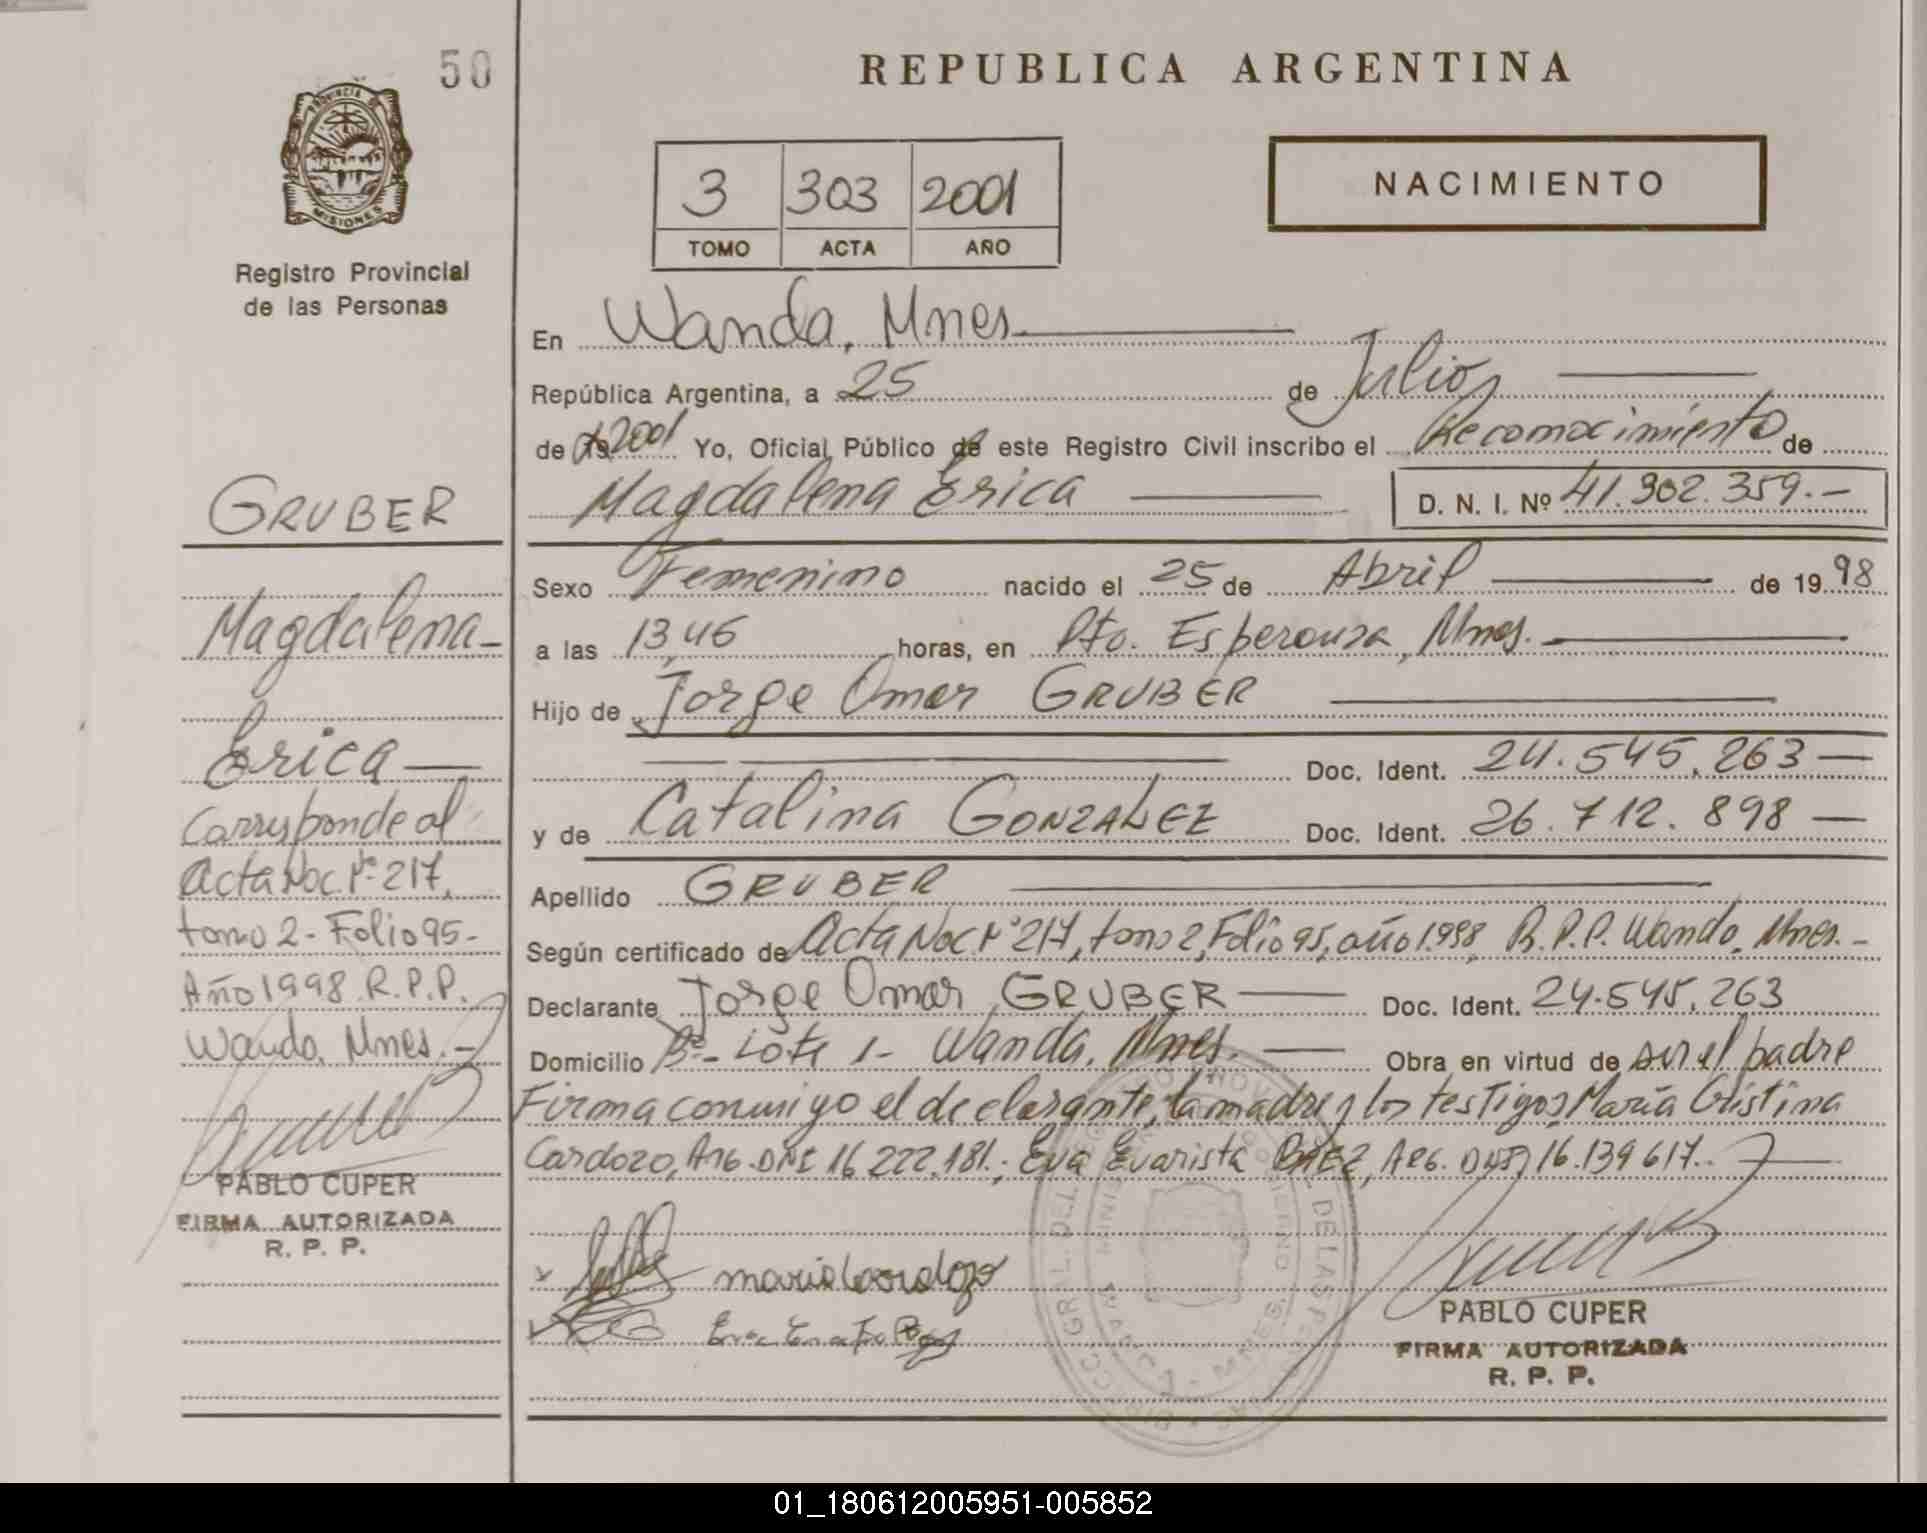 50
REPUBLICA ARGENTINA
PROVINCIA DE
MISIONES
Registro Provincial
de las Personas
3 303 2001
TOMO ACTA AÑO
NACIMIENTO
En Wanda, Mnes
República Argentina, a 25 de Julio
de 19 2001 Yo, Oficial Público de este Registro Civil inscribo el Reconocimiento de
Magdalena Erica D. N. I. Nº 41.902.359.-
Sexo Femenino nacido el 25 de Abril de 19 98
a las 13,46 horas, en Pto. Esperanza, Mnes.
Hijo de Jorge Omar GRUBER
Doc. Ident. 24.545.263
y de Catalina GONZALEZ Doc. Ident. 26.712.898
Apellido GRUBER
Según certificado de Acta Nac. Nº 217, tomo 2, Folio 95, año 1.998, R.P.P. Wanda, Mnes.-
Declarante Jorge Omar GRUBER Doc. Ident. 24.545.263
Domicilio Bº- Lote 1- Wanda, Mnes. Obra en virtud de ser el padre
Firma conmigo el declarante, la madre y los testigos María Cristina
Cardozo, Arg. DNI 16.222.181.; Eva Evarista BAEZ, Arg. DNI 16.139617.-
maria Cardozo
PABLO CUPER
FIRMA AUTORIZADA
R. P. P.
GRUBER
Magdalena-
Erica
Corresponde al
Acta Nac. Nº 217,
tomo 2- Folio 95-
Año 1998. R.P.P.
Wanda, Mnes.-
PABLO CUPER
FIRMA AUTORIZADA
R. P. P.
01_180612005951-005852